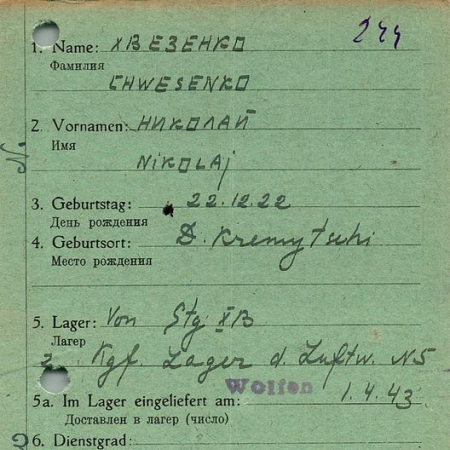 244
1. Name: ХВЕЗЕНКО
Фамилия
CHWESENKO
2. Vornamen: НИКОЛАЙ
Имя
NiKOLAj
3. Geburtstag: 22.12.22
День рождения
4. Geburtsort: D. Kremytschi
Место рождения
5. Lager: Von Stg. XB
Лагер
z. Kgf. Lager d. Luftw. N5
Wolfen
5a. Im Lager eingeliefert am: 1.4.43
Доставлен в лагер (число)
6. Dienstgrad: